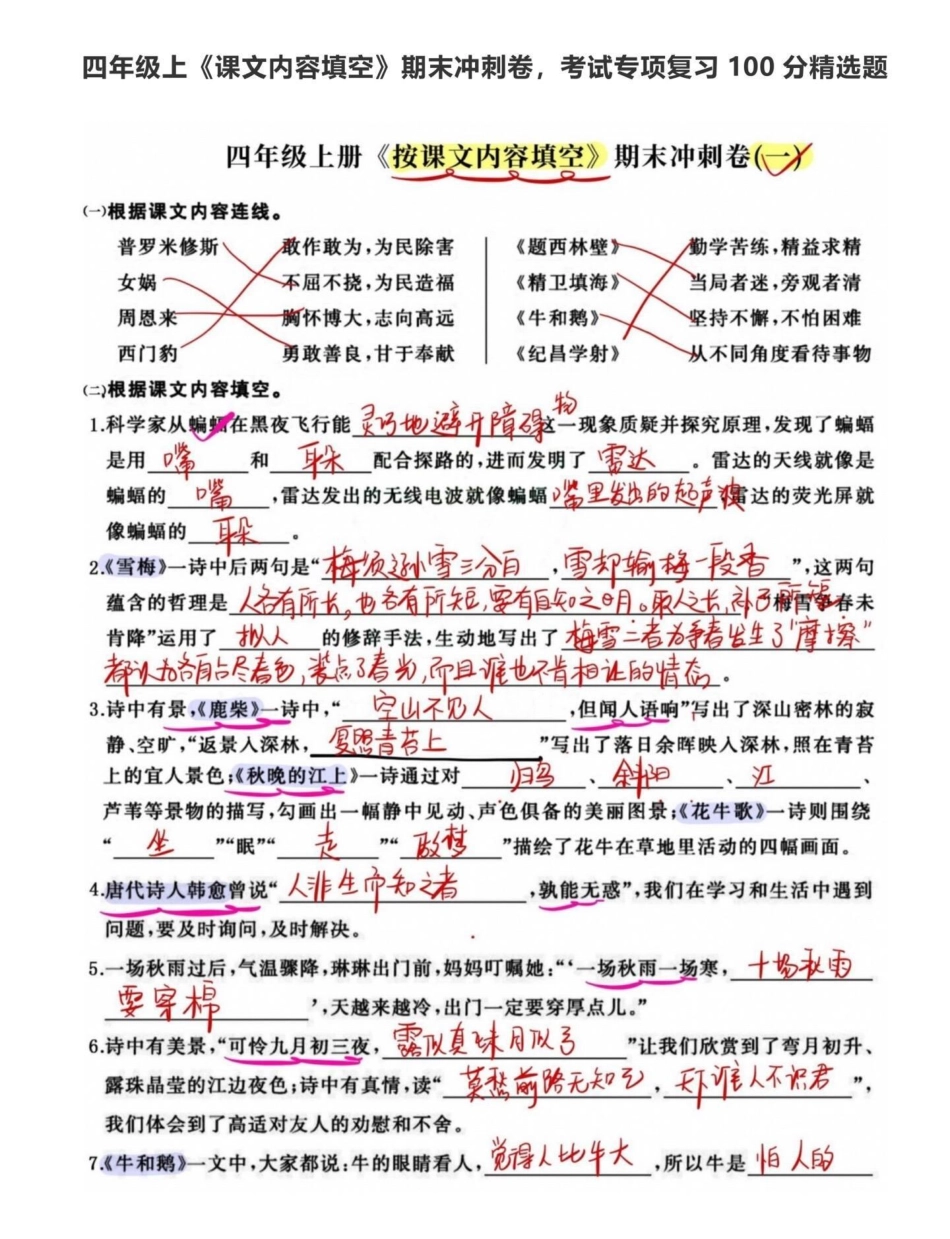 四年级上《课文内容填空》期末冲刺卷，考试专项复习 100 分精选题
四年级上册《按课文内容填空》期末冲刺卷(一)
(一)根据课文内容连线。
普罗米修斯 敢作敢为,为民除害 《题西林壁》 勤学苦练,精益求精
女娲 不屈不挠,为民造福 《精卫填海》 当局者迷,旁观者清
周恩来 胸怀博大,志向高远 《牛和鹅》 坚持不懈,不怕困难
西门豹 勇敢善良,甘于奉献 《纪昌学射》 从不同角度看待事物
(二)根据课文内容填空。
1.科学家从蝙蝠在黑夜飞行能灵巧地避开障碍物这一现象质疑并探究原理,发现了蝙蝠
是用 嘴 和 耳朵 配合探路的,进而发明了 雷达 。雷达的天线就像是
蝙蝠的 嘴 ,雷达发出的无线电波就像蝙蝠嘴里发出的超声波雷达的荧光屏就
像蝙蝠的 耳朵 。
2.《雪梅》一诗中后两句是“梅须逊雪三分白,雪却输梅一段香”,这两句
蕴含的哲理是人各有所长,也各有所短,要有自知之明。取人之长,补己所短“梅雪争春未
肯降”运用了 拟人 的修辞手法,生动地写出了梅雪二者为争春发生了“摩擦”
都认为各自占尽春色,装点了春光,而且谁也不肯相让的情态。
3.诗中有景,《鹿柴》一诗中,“ 空山不见人 ,但闻人语响”写出了深山密林的寂
静、空旷,“返景入深林, 复照青苔上 ”写出了落日余晖映入深林,照在青苔
上的宜人景色;《秋晚的江上》一诗通过对 归鸟 、 斜阳 、 江 、
芦苇等景物的描写,勾画出一幅静中见动、声色俱备的美丽图景;《花牛歌》一诗则围绕
“ 坐 ”“眠”“ 走 ”“ 做梦 ”描绘了花牛在草地里活动的四幅画面。
4.唐代诗人韩愈曾说“ 人非生而知之者 ,孰能无惑”,我们在学习和生活中遇到
问题,要及时询问,及时解决。
5.一场秋雨过后,气温骤降,琳琳出门前,妈妈叮嘱她:“‘一场秋雨一场寒, 十场秋雨
要穿棉 ’,天越来越冷,出门一定要穿厚点儿。”
6.诗中有美景,“可怜九月初三夜, 露似真珠月似弓 ”让我们欣赏到了弯月初升、
露珠晶莹的江边夜色;诗中有真情,读“ 莫愁前路无知己 , 天下谁人不识君 ”,
我们体会到了高适对友人的劝慰和不舍。
7.《牛和鹅》一文中,大家都说:牛的眼睛看人, 觉得人比牛大 ,所以牛是 怕人的